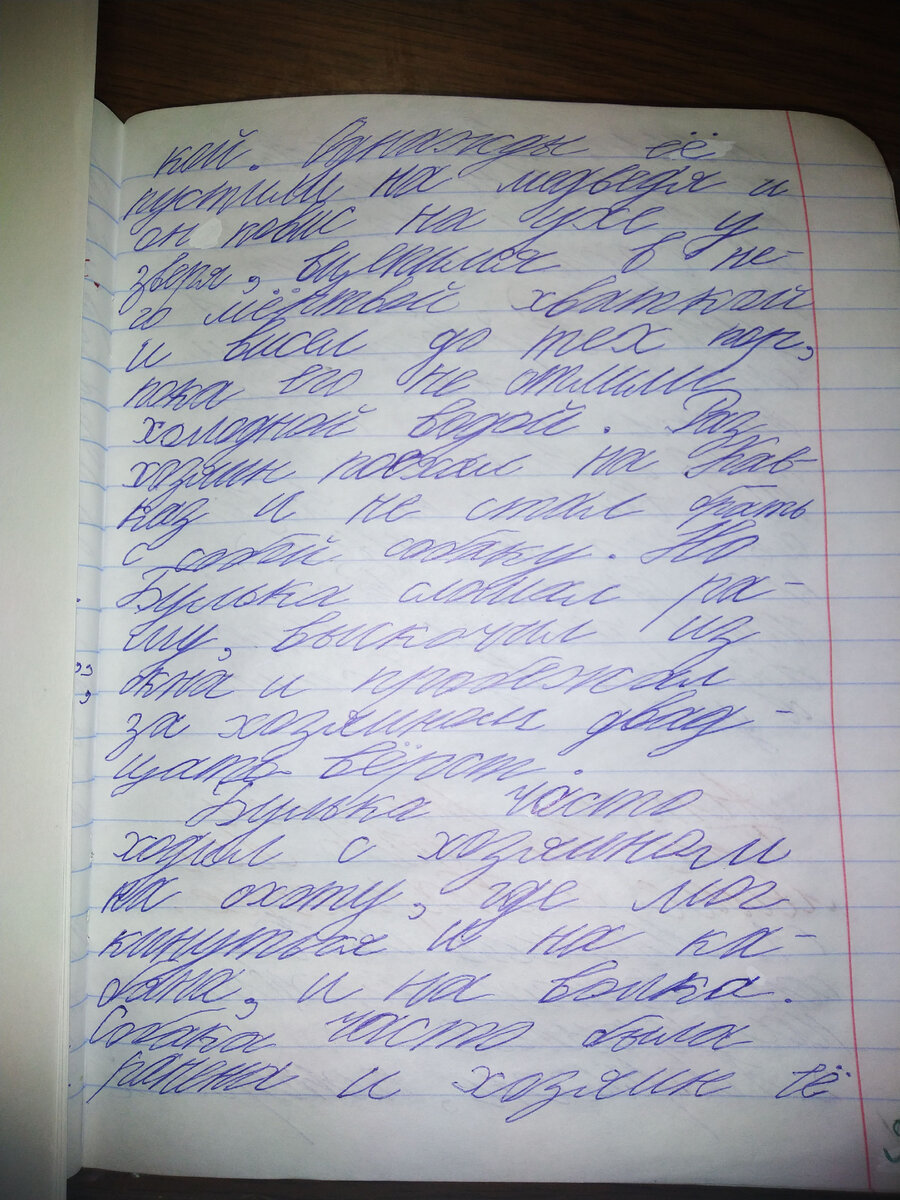 кой. Однажды её
пустили на медведя и
он повис на ухе у
зверя, вцепился в не-
го мёртвой хваткой
и висел до тех пор,
пока его не отлили
холодной водой. Раз
хозяин поехал на Кав-
каз и не стал брать
с собой собаку. Но
Булька сломал ра-
му, выскочил из
окна и пробежал
за хозяином двад-
цать вёрст.
Булька часто
ходил с хозяином
на охоту, где мог
кинуться и на ка-
бана, и на волка.
Собака часто была
ранена и хозяин её